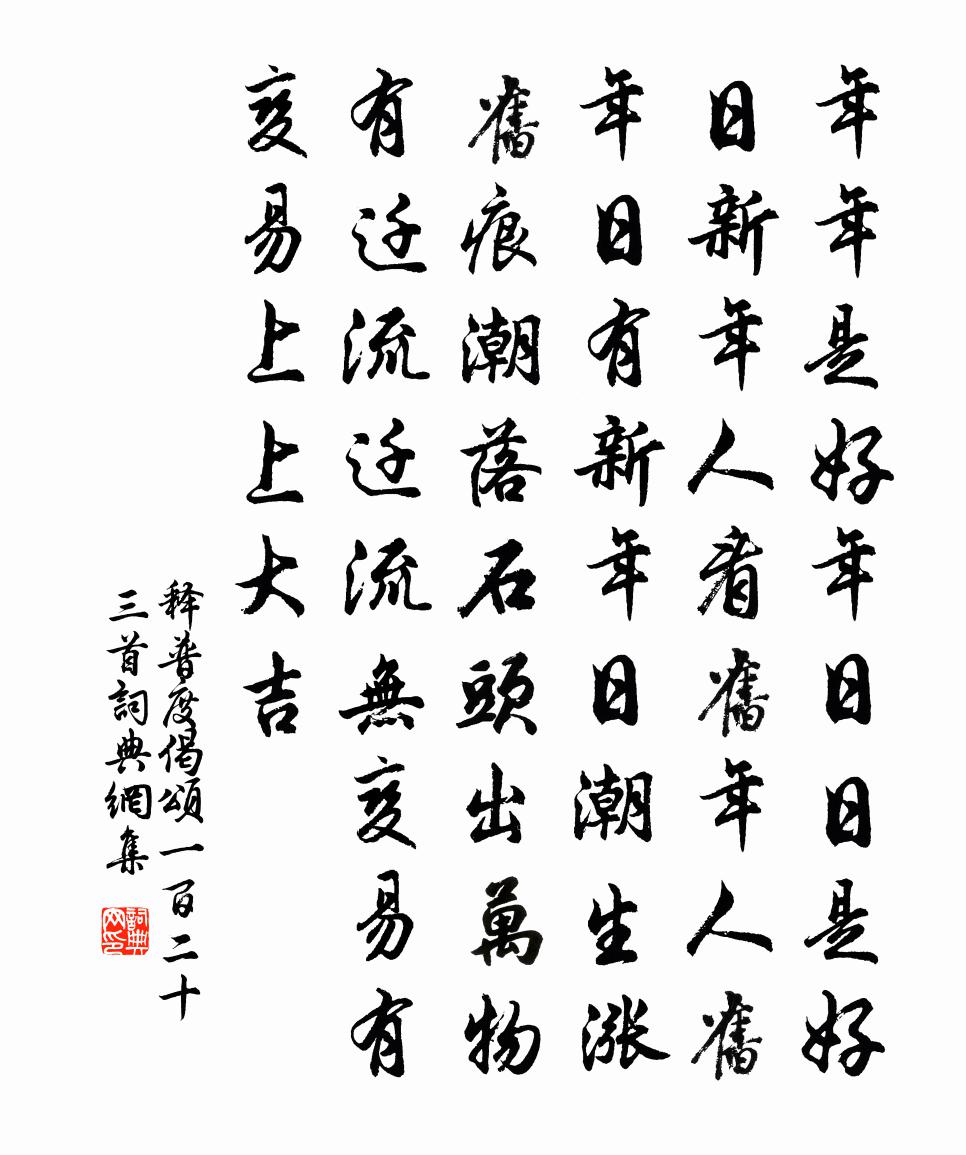 年年是好年日日是好
日新年人看舊年人舊
年日有新年日潮生漲
舊痕潮落石頭出萬物
有迁流迁流無变易有
变易上上大吉
释普度偈頌一百二十
三首詞典網集
詞典网印